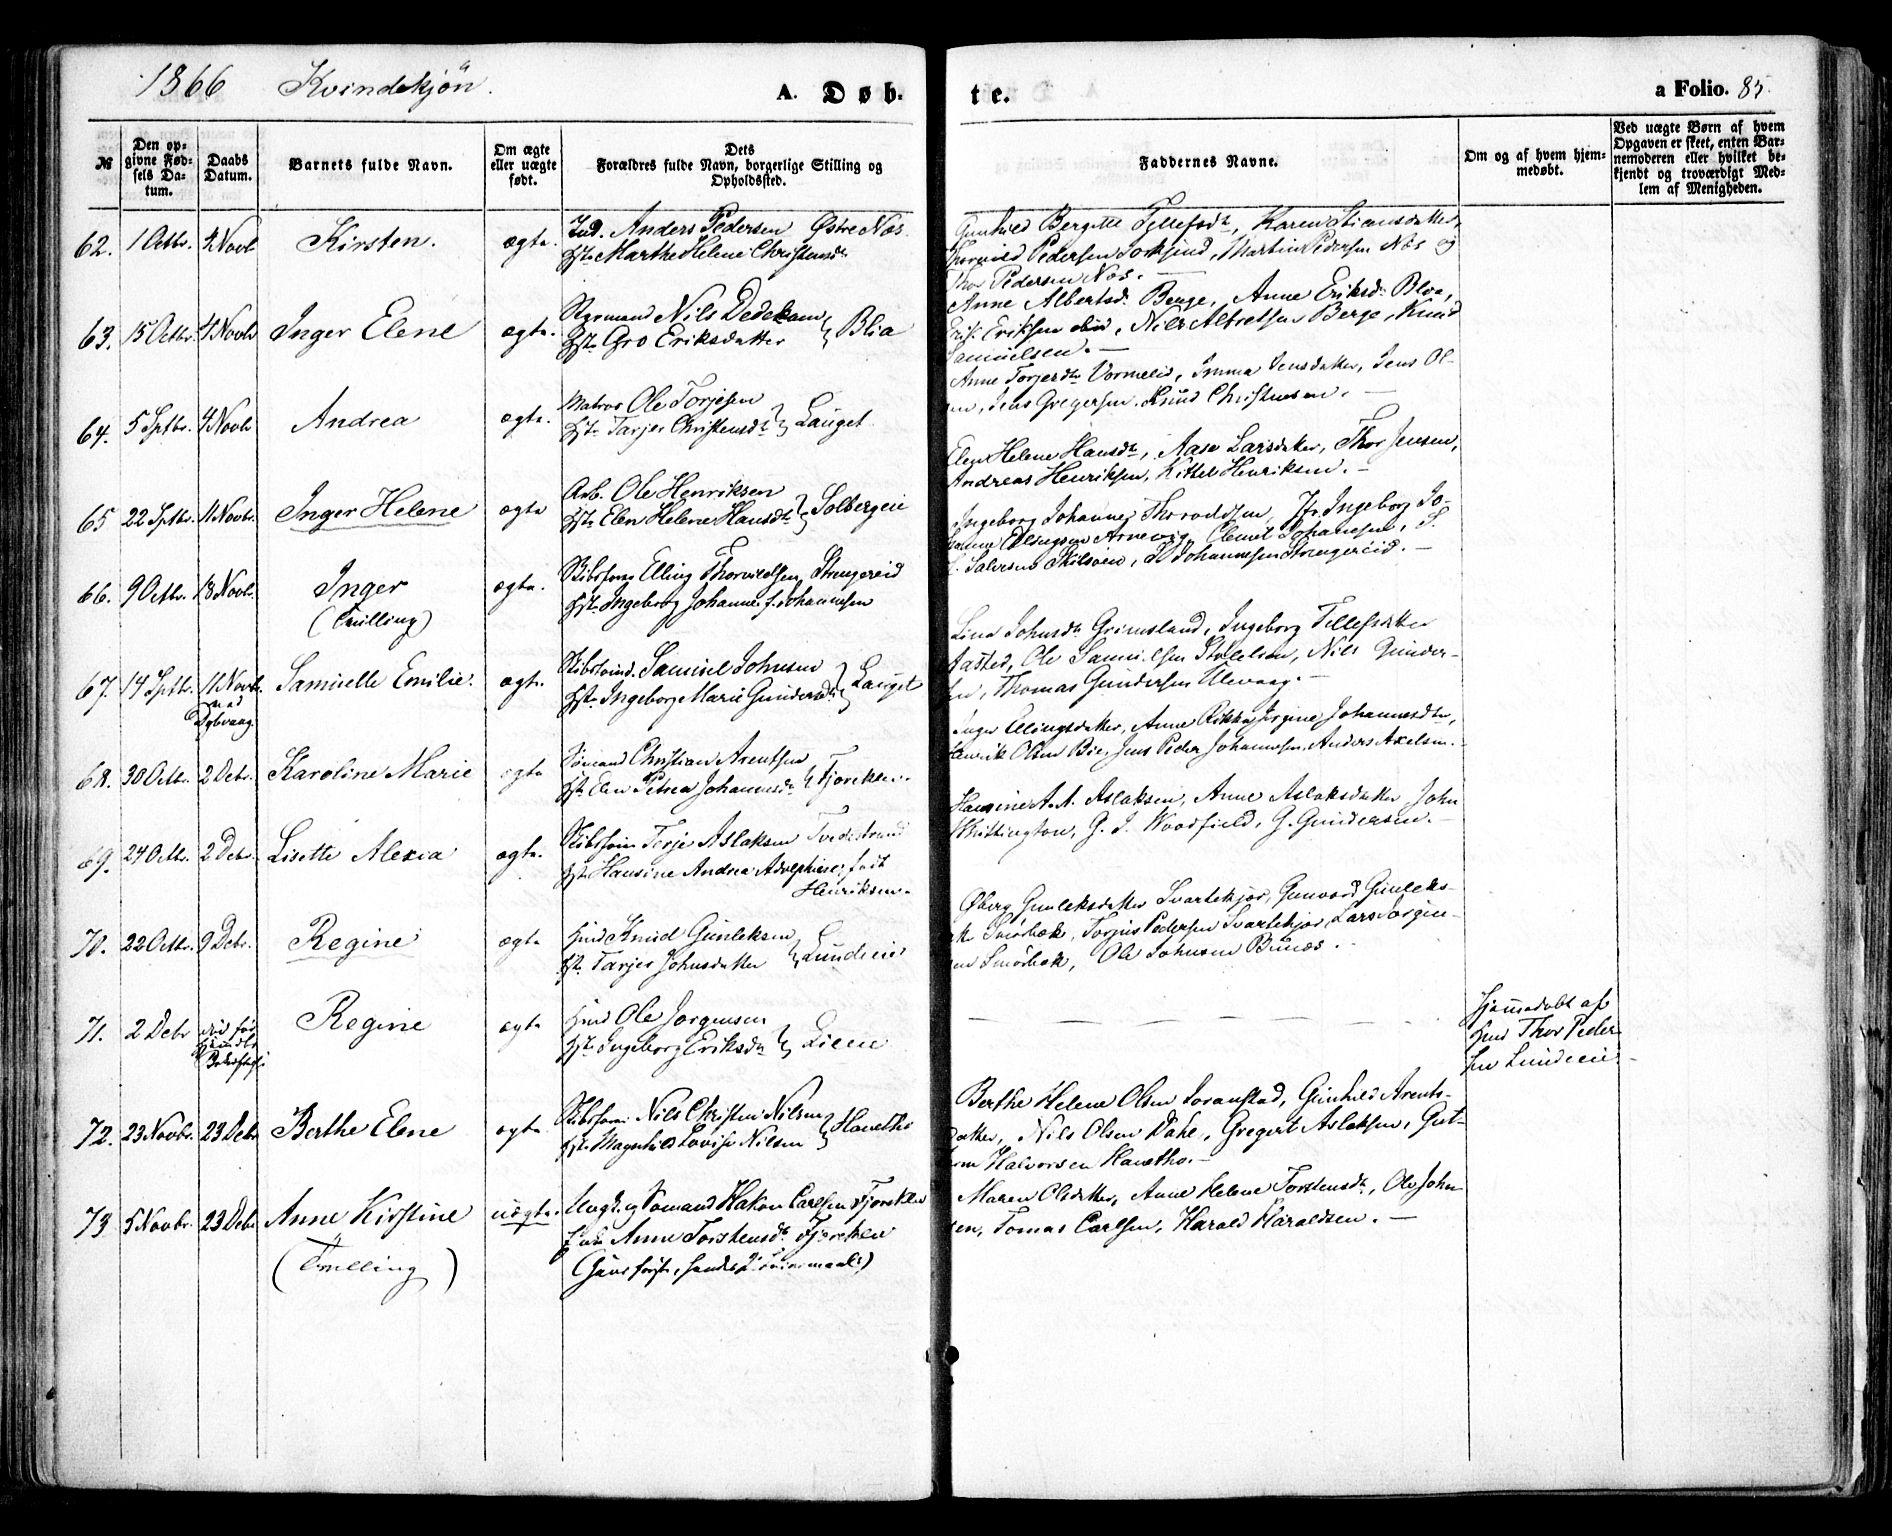 1866 Kvindekjøn.
A. Døb- te.
a Folio. 85.
№
Den opgivne Fødsels Datum.
Daabs Datum.
Barnets fulde Navn.
Om ægte eller uægte født.
Dets Forældres fulde Navn, borgerlige Stilling og Opholdssted.
Faddernes Navne.
Om og af hvem hjemmedøbt.
Ved uægte Børn af hvem Opgaven er skeet, enten Barnemoderen eller hvilket bekjendt og troværdigt Medlem af Menigheden.
62. 1 Octbr. 4 Novb Kirsten. ægte. Ind. Anders Pedersen Østre Næs
Hst. Marthe Helene Christensdt
Gunhild Bergitte Tellefsdt, Karen Stiansdatter,
Thorvild Pedersen, Martin Pedersen Næs og
Thor Pedersen Næs. —
63. 15 Octbr. 4 Novb Inger Elene ægte. Styrmand Nils Dedekam
Hst. Gro Eriksdatter } Blia
Anne Albertsd. Berge, Anne Eriksd. Blia,
Erik Eriksen ibid, Nils Albretsen Berge, Knud
Samuelsen. —
64. 5 Septbr. 4 Novb Andrea ægte. Matros Ole Torjesen
Hst. Tarjer Christensdt } Lauget
Anne Torjersdt Vormelid, Imma Jensdatter, Jens Ol-
sen, Jens Gregersen, Knud Christensen. —
65 22 Septbr. 11 Novbr. Inger Helene ægte Arb. Ole Henriksen
Hst. Elen Helene Hansdt } Solbergeie
Elen Helene Hansdt, Aase Larsdatter, Thor Jensen,
Andreas Henriksen, Kittel Henriksen. —
66. 9 Octbr. 18 Novb. Inger
(Tvilling) ægte. Skibsføre Elling Thorvildsen Strengereid
Hst. Ingeborg Johanne f. Johannesen
Ingeborg Johanne Thorvildsen, Jfr. Ingeborg Jo-
hanne Ellingsen Arnevig, Clemet Johannesen, S.
S. Salvesen Skilsøen, Johannesen Strengereid. —
67. 14 Septbr. 11 Novb. Samuelle Emilie. ægte. Skibstømd. Samuel Johnsen
Hst. Ingeborg Marie Gundersdt } Lauget
ved
Dybvaag
Line Johnsdt Grimsland, Ingeborg Tellefsdatter
Ole Samuelsen, Nils Gunder-
sen, Thomas Gundersen Ulevaag. —
68. 30 Octbr. 2 Debr. Karoline Marie ægte Sømand Christian Arentsen
Hst. Elen Petrea Johannesdt } Fjorekilen.
Inger Ellingsdatter, Anne Rikka Jorgine Johannesdtr,
Henrik Olsen Bie, Jens Peder Johannesen, Anders Axelsen. —
69. 24 Octbr. 2 Debr. Lisette Alexia ægte. Skibsfører Terje Aslaksen Tvedestrand
Hst. Hansine Andrea Adolphine, født
Henriksen.
Hansine A. A. Aslaksen, Anne Aslaksdatter, John
Whittington, G. J. Woodfield, G. Gundersen. —
70. 22 Octbr. 9 Debr. Regine ægte Hmd Knud Gunleksen
Hst. Tarjer Johnsdatter } Lundeeie
Øberg Gunleksdatter Svartekjør, Gunvord Gunleks-
datter Smørbæk, Torjus Pedersen Svartekjør, Lars Jørgen-
sen Smørbæk, Ole Johnsen Bunæs. —
71. 2 Debr Regine ægte Hmd Ole Jørgensen
Hst. Ingeborg Eriksdt } Lieeie
Hjemmedøbt af
Hmd Thor Peder-
sen Lundeeie —
72. 23 Novbr. 23 Debr Berthe Elene ægte. Skibsfører Nils Christen Nilsen
Hst. Magnhild Lovise Nilsen } Hanetho
Berthe Helene Olsen Songstad, Gunhild Arents-
datter, Nils Olsen Dahl, Gregert Aslaksen, Gut-
orm Halvorsen Hanetho. —
73 5 Novbr. 23 Debr Anne Kirstine
(Tvilling) uægte. Ungk. og Sømand Hakon Carlsen Fjorekilen
Pige Anne Torstensdt. Fjorekilen
(hans første, hendes 2det Leiermaal)
Maren Olsdatter, Anne Helene Torstensdt, Ole John-
sen, Tomas Carlsen, Harald Haraldsen. —